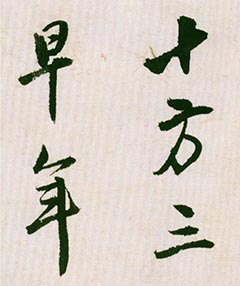 十方三
早年